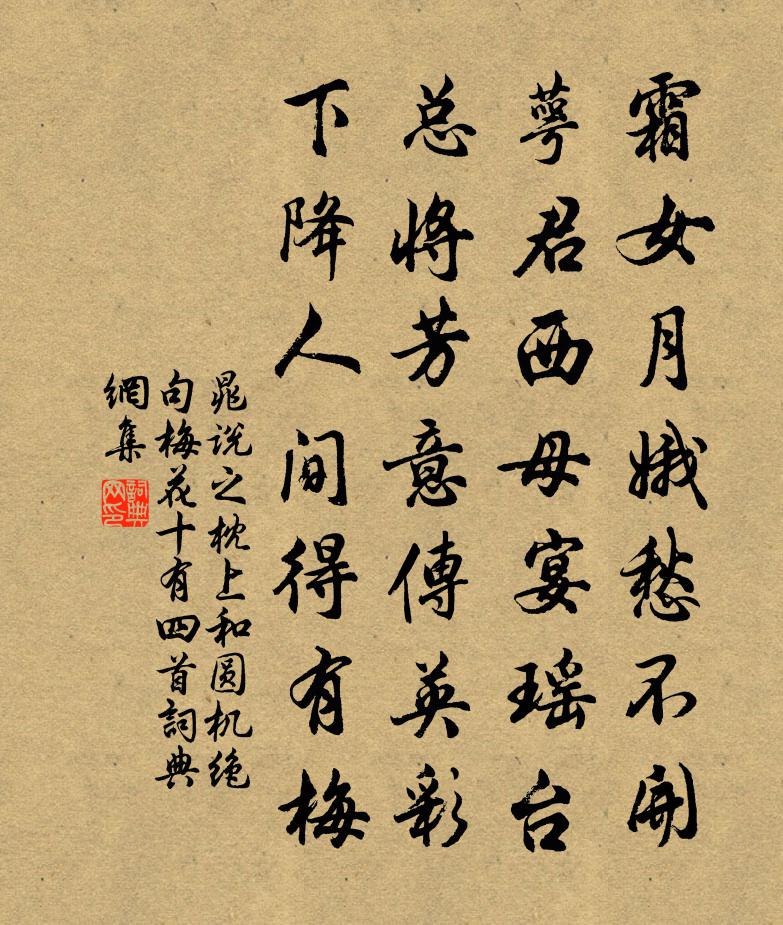 霜女月娥愁不開
萼君西母宴瑶台
总將芳意傳英彩
下降人间得有梅
晁说之枕上和圆机绝
句梅花十有四首詞典
網集
詞典
网印